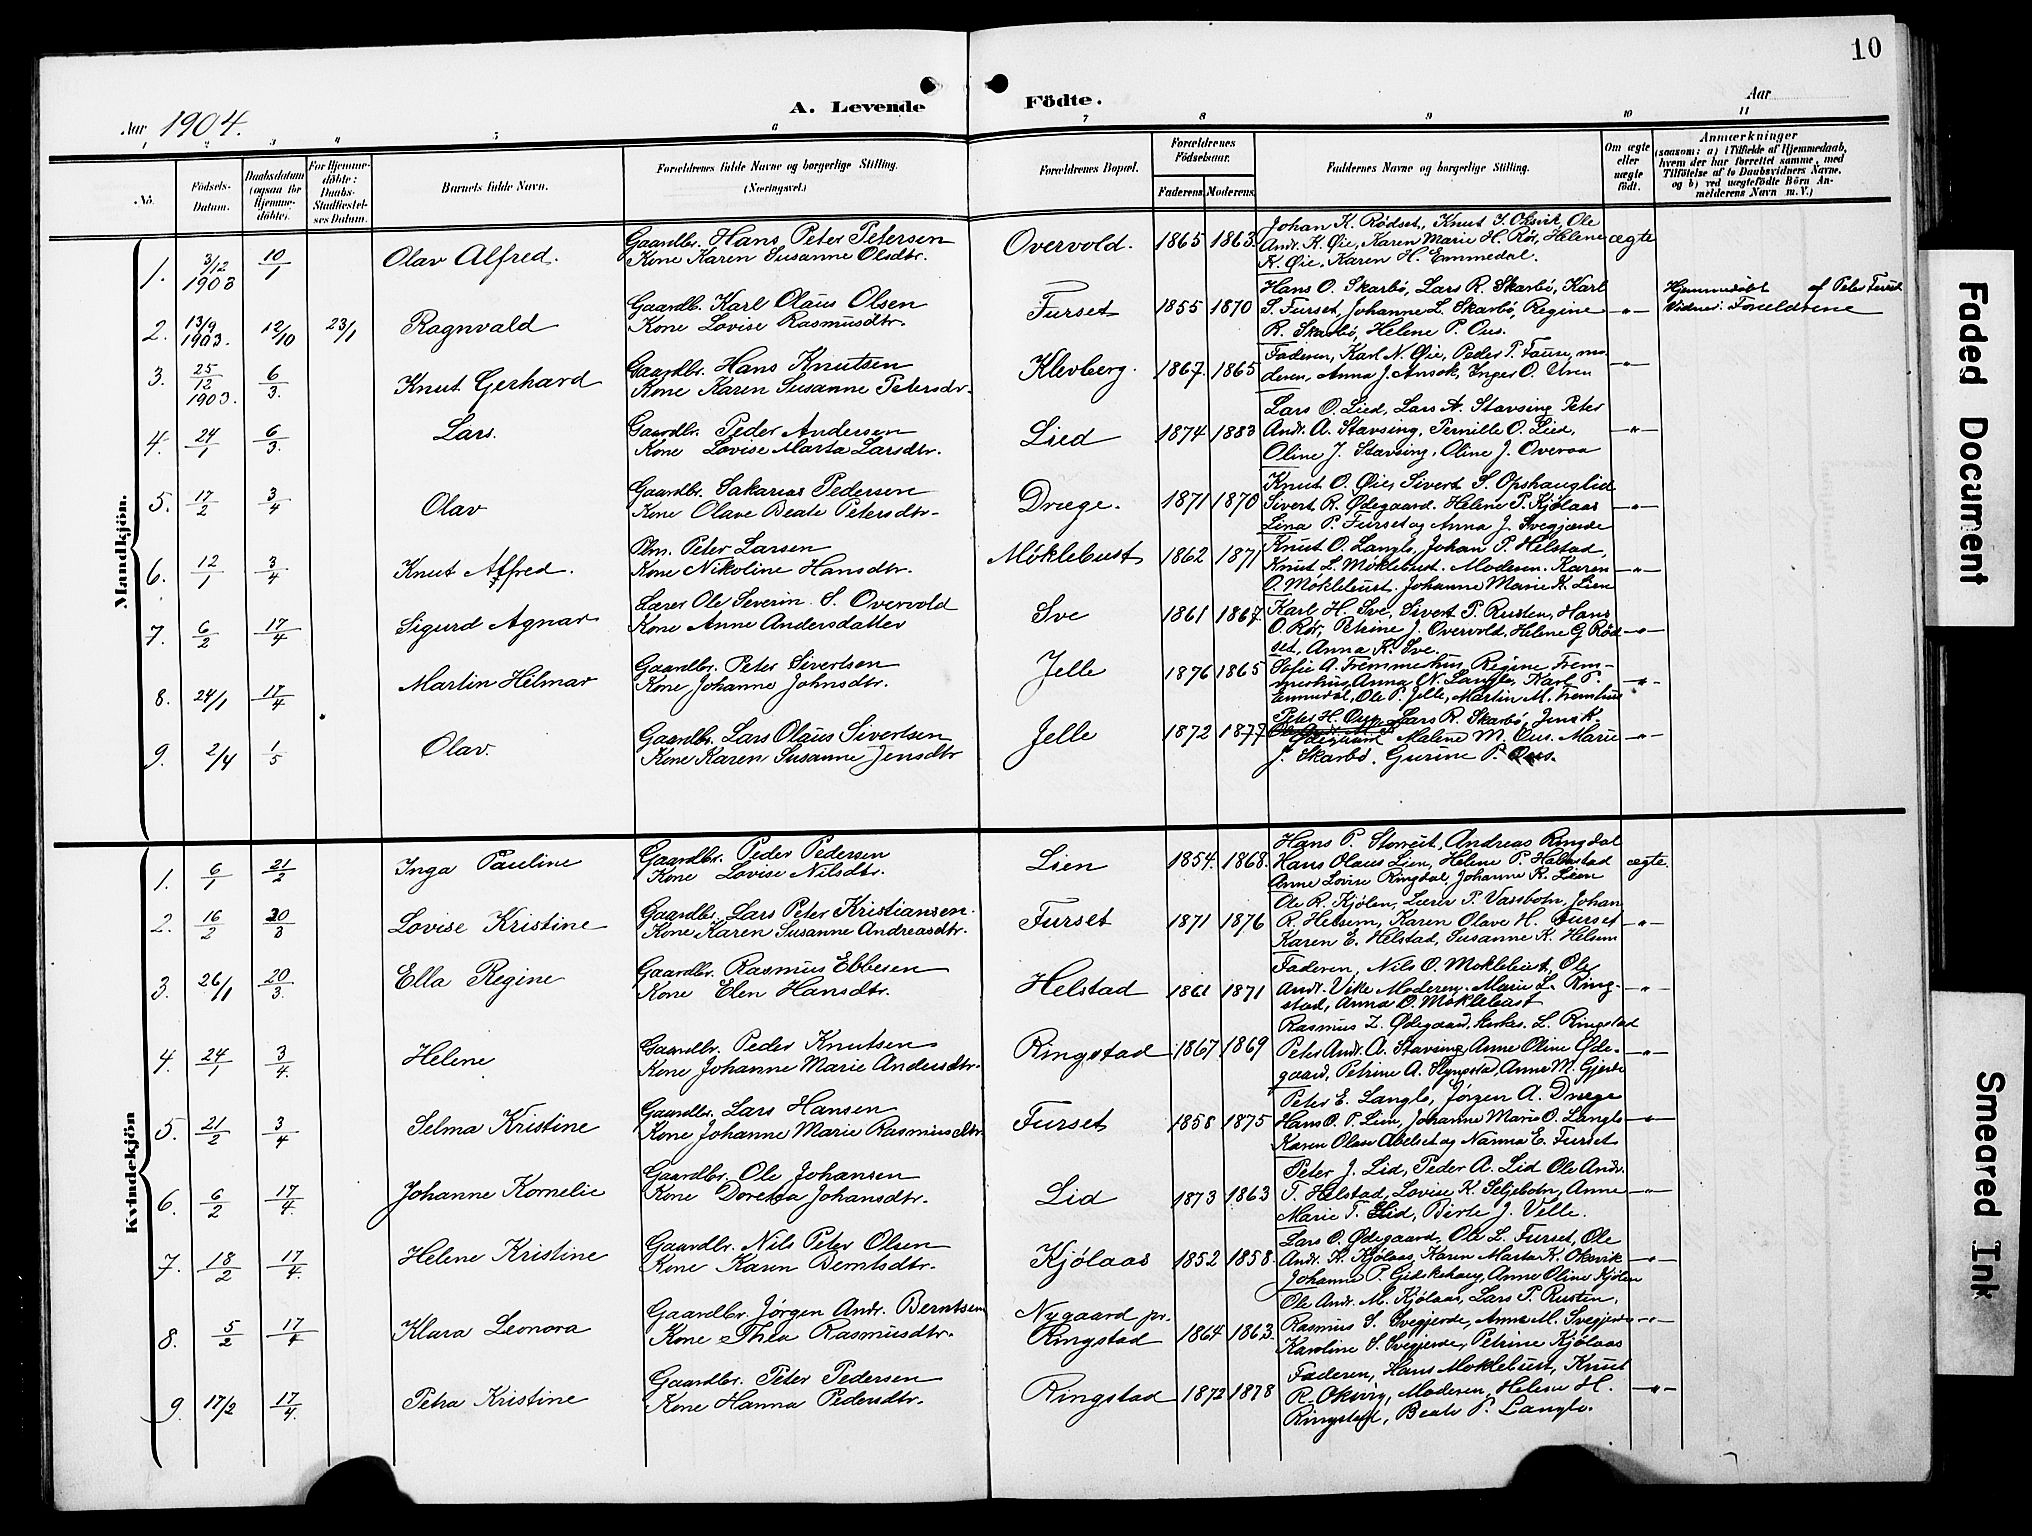 10
A. Levende Födte.
Aar 1904.
Aar
1 2 3 4 5 6 7 8 9 10 11
No.
Födsels-Datum.
Daabsdatum (ogsaa for Hjemme-döbte).
For Hjemme-döbte: Daabs-Stadfæstel-ses Datum.
Barnets fulde Navn.
Forældrenes fulde Navne og borgerlige Stilling. (Næringsvei.)
Forældrenes Bopæl.
Forældrenes Födselsaar.
Faderens. Moderens.
Faddernes Navne og borgerlige Stilling.
Om ægte eller uægte födt.
Anmærkninger
(saasom: a) i Tilfælde af Hjemmedaab, hvem der har forrettet samme, med Tilföielse af to Daabsvidners Navne, og b) ved uægtefödte Börn An-melderens Navn m. V.)
Mandkjön.
1. 3/12 1903 10/1 Olav Alfred. Gaardbr. Hans Peter Petersen
Kone Karen Susanne Olsdtr. Overvold. 1865 1863. Johan K. Rødset, Knut J. Oksvik, Ole
Andr. K. Øie, Karen Marie H. Rør, Helene
K. Øie, Karen H. Emmedal. ægte
2. 13/9 1903. 12/10 23/1 Ragnvald Gaardb. Karl Olaus Olsen
Kone Lovise Rasmusdtr. Furset 1855 1870 Hans O. Skarbø, Lars R. Skarbø, Karl
S. Furset, Johanne L. Skarbø, Regine
R. Skarbø, Helene P. Ous. -"- Hjemmedøbt af Peter Furset
Vidner: Forældrene
3. 25/12 1903. 6/3. Knut Gerhard Gaardbr. Hans Knutsen
Kone Karen Susanne Petersdtr. Klevberg. 1867. 1865 Faderen, Karl N. Øie, Peder P. Fause, mo-
deren, Anna J. Ansok, Inger O. Uren -"-
4. 24/1 6/3. Lars. Gaardbr. Peder Andersen
Kone Lovise Marta Larsdtr. Lied 1874 1883 Lars O. Lied, Lars A. Stavsing, Peter
Andr. A. Stavsing, Pernille O. Lied,
Oline J. Stavsing, Oline J. Overaa -"-
5. 17/2 3/4 Olav Gaardbr. Sakarias Pedersen
Kone Olave Beate Petersdtr. Drøge. 1871 1870 Knut O. Øie, Sivert S. Opshauglid
Sivert R. Ødegaard. Helene P. Kjølaas
Lina P. Furset og Anna J. Svegjerde -"-
6. 12/1 3/4 Knut Alfred. Plm. Peter Larsen
Kone Nikoline Hansdtr. Møklebust 1862 1871 Knut O. Langlo, Johan P. Helstad,
Knut L. Møklebust. Moderen. Karen
O. Møklebust. Johanne Marie K. Lien -"-
7. 6/2 17/4 Sigurd Agnar Lærer Ole Severin S. Overvold
Kone Anne Andersdatter Sve 1861 1867. Karl H. Sve, Sivert P. Rusten, Hans
O. Rør, Petrine J. Overvold, Helene G. Rød-
set, Anna K. Sve. -"-
8. 24/1 17/4 Martin Helmar Gaardbr. Peter Sivertsen
Kone Johanne Johnsdtr. Jelle 1876 1865 Sofie A. Fremmerhus, Regine Frem-
merhus, Anna N. Langlo, Karl P.
Emmedal, Ole P. Jelle, Martin M. Fremhus -"-
9. 2/4 1/5 Olav. Gaardbr. Lars Olaus Sivertsen
Kone Karen Susanne Jensdtr Jelle 1872 1877 Peter H. Ous, Lars R. Skarbø, Jens K.
Ødegaard Malene M. Ous. Marie
J. Skarbø, Gurine P. Ous. -"-
Kvindekjön
1. 6/1 21/2 Inga Pauline Gaardbr. Peder Pedersen
Kone Lovise Nilsdtr. Lien 1854. 1868. Hans P. Storeit, Andreas Ringdal
Hans Olaus Lien, Helene P. Halmstad
Anne Lovise Ringdal, Johanne R. Lien ægte.
2. 16/2 20/3 Lovise Kristine Gaardbr. Lars Peter Kristiansen.
Kone Karen Susanne Andreasdtr. Furset 1871 1876 Ole R. Kjølen, Lærer P. Vassbotn, Johan
R. Helsem, Karen Olave H. Furset
Karen E. Helstad, Susanne K. Helsem -"-
3. 26/1 20/3. Ella Regine Gaardbr. Rasmus Ebbesen
Kone Elen Hansdtr. Helstad 1861 1871 Faderen, Nils O. Møklebust, Ole
Andr. Vike Moderen. Marie L. Ring-
stad, Anna O. Møklebust -"-
4. 24/1 3/4. Helene Gaardbr. Peder Knutsen
Kone Johanne Marie Andersdtr. Ringstad 1867. 1869 Rasmus L. Ødegaard, L. Ringstad
Peter Andr. A. Stavsing, Anne Oline Øde-
gaard, Petrine A. Slyngstad, Anne M. Gjerde -"-
5. 21/2 3/4 Selma Kristine Gaardbr. Lars Hansen
Kone Johanne Marie Rasmusdtr Furset 1858 1875 Peter E. Langlo, Jørgen A. Drøge
Hans O. P. Lien, Johanne Marie O. Langlo
Karen Olave Abelset og Nanna E. Furset -"-
6. 6/2 17/4. Johanne Kornelie Gaardbr. Ole Johansen
Kone Doretea Johansdtr. Lid 1873 1863 Peter J. Lid, Peder A. Lid Ole Andr.
T. Helstad, Lovise K. Seljebotn, Anne
Marie T. Lid, Birte J. Velle. -"-
7. 18/2 17/4. Helene Kristine Gaardbr. Nils Peter Olsen
Kone Karen Berntsdtr. Kjølaas 1852 1858. Lars O. Ødegaard, Ole L. Furset, Ole
Andr. K. Kjølaas, Karen Marta K. Oksvik
Johanne P. Gidskehaug, Anne Oline Kjølen -"-
8. 5/2 17/4 Klara Leonora Gaardbr. Jørgen Andr. Berntsen
Kone Thea Rasmusdtr. Nygaard pr.
Ringstad 1864 1863. Ole Andr. M. Kjølaas, Lars P. Rusten,
Rasmus S. Svegjerde, Anna M. Svegjerde
Karoline S. Svegjerde, Petrine Kjølaas -"-
9. 17/2 17/4. Petra Kristine Gaardbr. Peter Pedersen
Kone Hanna Pedersdtr. Ringstad 1872 1878 Faderen, Hans Møklebust, Knut
R. Oksvig, Moderen, Helene H.
Ringstad, Beate P. Langlo. -"-
Faded Document
Smeared Ink